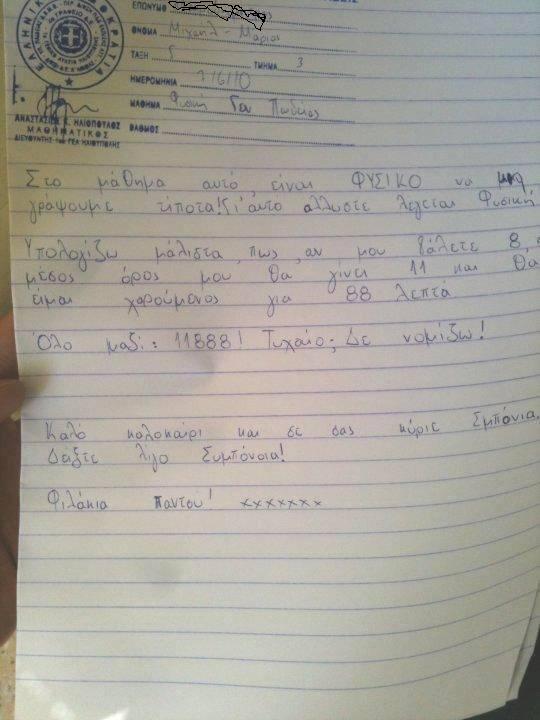 ΕΛΛΗΝΙΚΗ ΔΗΜΟΚΡΑΤΙΑ
ΕΠΩΝΥΜΟ
ΟΝΟΜΑ Μιχαήλ - Μάριος
ΤΑΞΗ Γ ΤΜΗΜΑ 3
ΗΜΕΡΟΜΗΝΙΑ 7/6/10
ΜΑΘΗΜΑ Φυσική Γεν Παιδείας
ΒΑΘΜΟΣ
ΑΝΑΣΤΑΣΙΟΣ Κ. ΗΛΙΟΠΟΥΛΟΣ
ΜΑΘΗΜΑΤΙΚΟΣ
ΔΙΕΥΘΥΝΤΗΣ 1ου ΓΕΛ ΗΛΙΟΥΠΟΛΗΣ
Στο μάθημα αυτό, είναι ΦΥΣΙΚΟ να μην
γράψουμε τίποτα! Γι'αυτό άλλωστε λέγεται Φυσική
Υπολογίζω μάλιστα, πως, αν μου βάλετε 8, ο
μέσος όρος μου θα γίνει 11 και θα
είμαι χαρούμενος για 88 λεπτά
Όλο μαζί: 11888! Τυχαίο; Δε νομίζω!
Καλό καλοκαίρι και σε σας κύριε Σμπόνια.
Δείξτε λίγο Συμπόνοια!
Φιλάκια Παντού! xxxxxxx